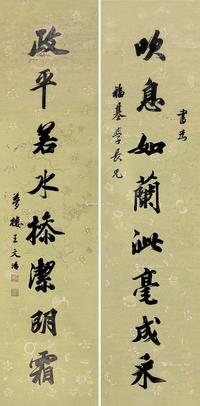 書為
吹息如蘭泚毫成采
福基學長兄
政平若水操潔明霜
夢樓王文治